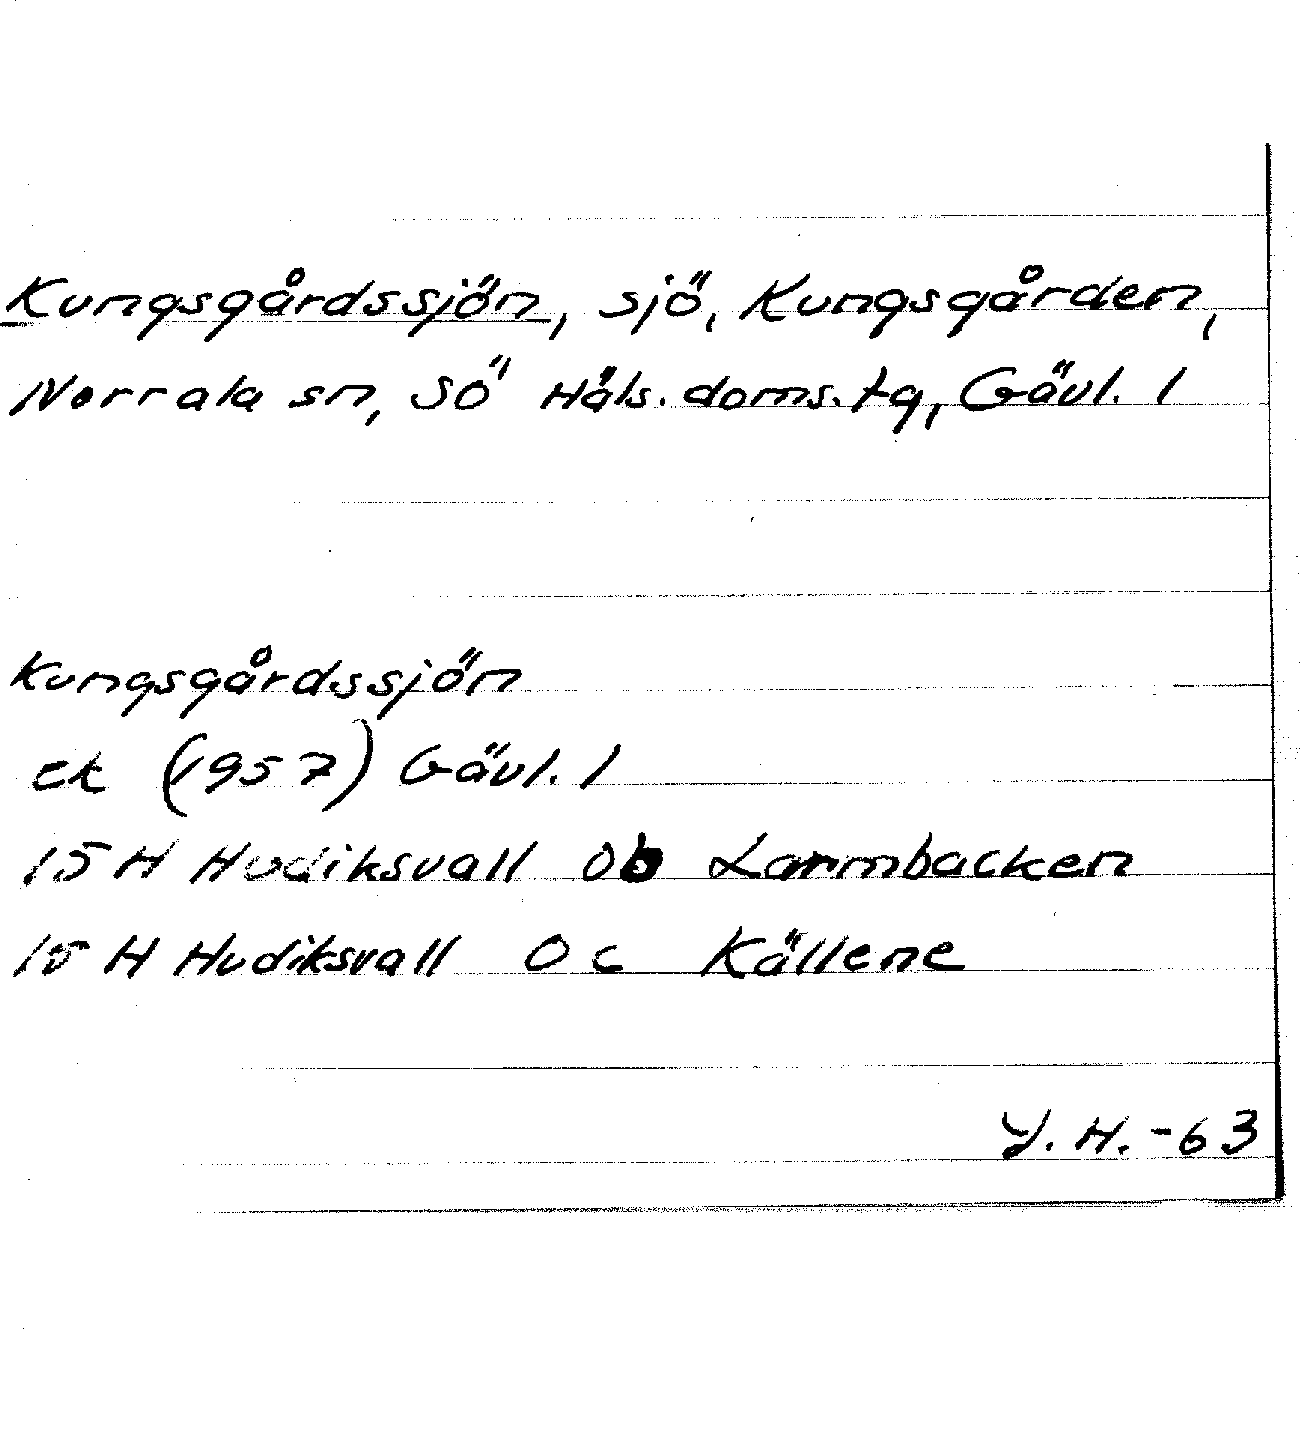 Kungsgårdssjön, sjö, Kungsgården,
Norrala sn, SÖ Häls. doms. tg, Gävl. l
Kungsgårdssjön
ek (1957) Gävl. l
15 H Hudiksvall 0b Larmbacken
15 H Hudiksvall 0c Källene
Y. H. -63